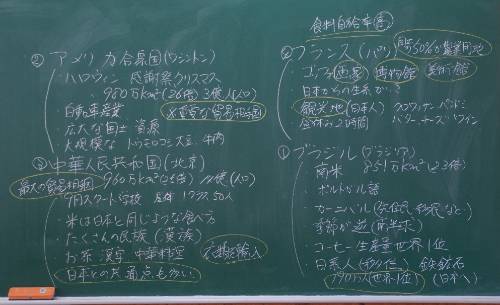 ② アメリカ合衆国(ワシントン)
・ハロウィン 感謝祭 クリスマス
・950万km²(26倍) 3億人(人口)
・自動車産業 ※重要な貿易相手国
・広大な国土 資源
・大規模な トウモロコシ 大豆 牛肉
③ 中華人民共和国(北京)
最大の貿易相手国 960万km²(26倍)
・9月スタート学校 1クラス50人
・米は日本と同じような食べ方
・たくさんの民族(漢族)
・お茶 漢字 中華料理
・日本との共通点も多い
食料自給率高
フランス(パリ) 国土50%が農業用地
・ゴッホ 画家 博物館 美術館
・日本からの生糸
・観光地(日本人) クロワッサン
・昼休み2時間 バター チーズ ワイン
① ブラジル(ブラジリア)
・南米 851万km²(23倍)
・ポルトガル語
・カーニバル(先住民 移民など)
・季節が逆(南半球)
・コーヒー生産量世界1位
・日系人 鉄鉱石
190万人(世界1位)